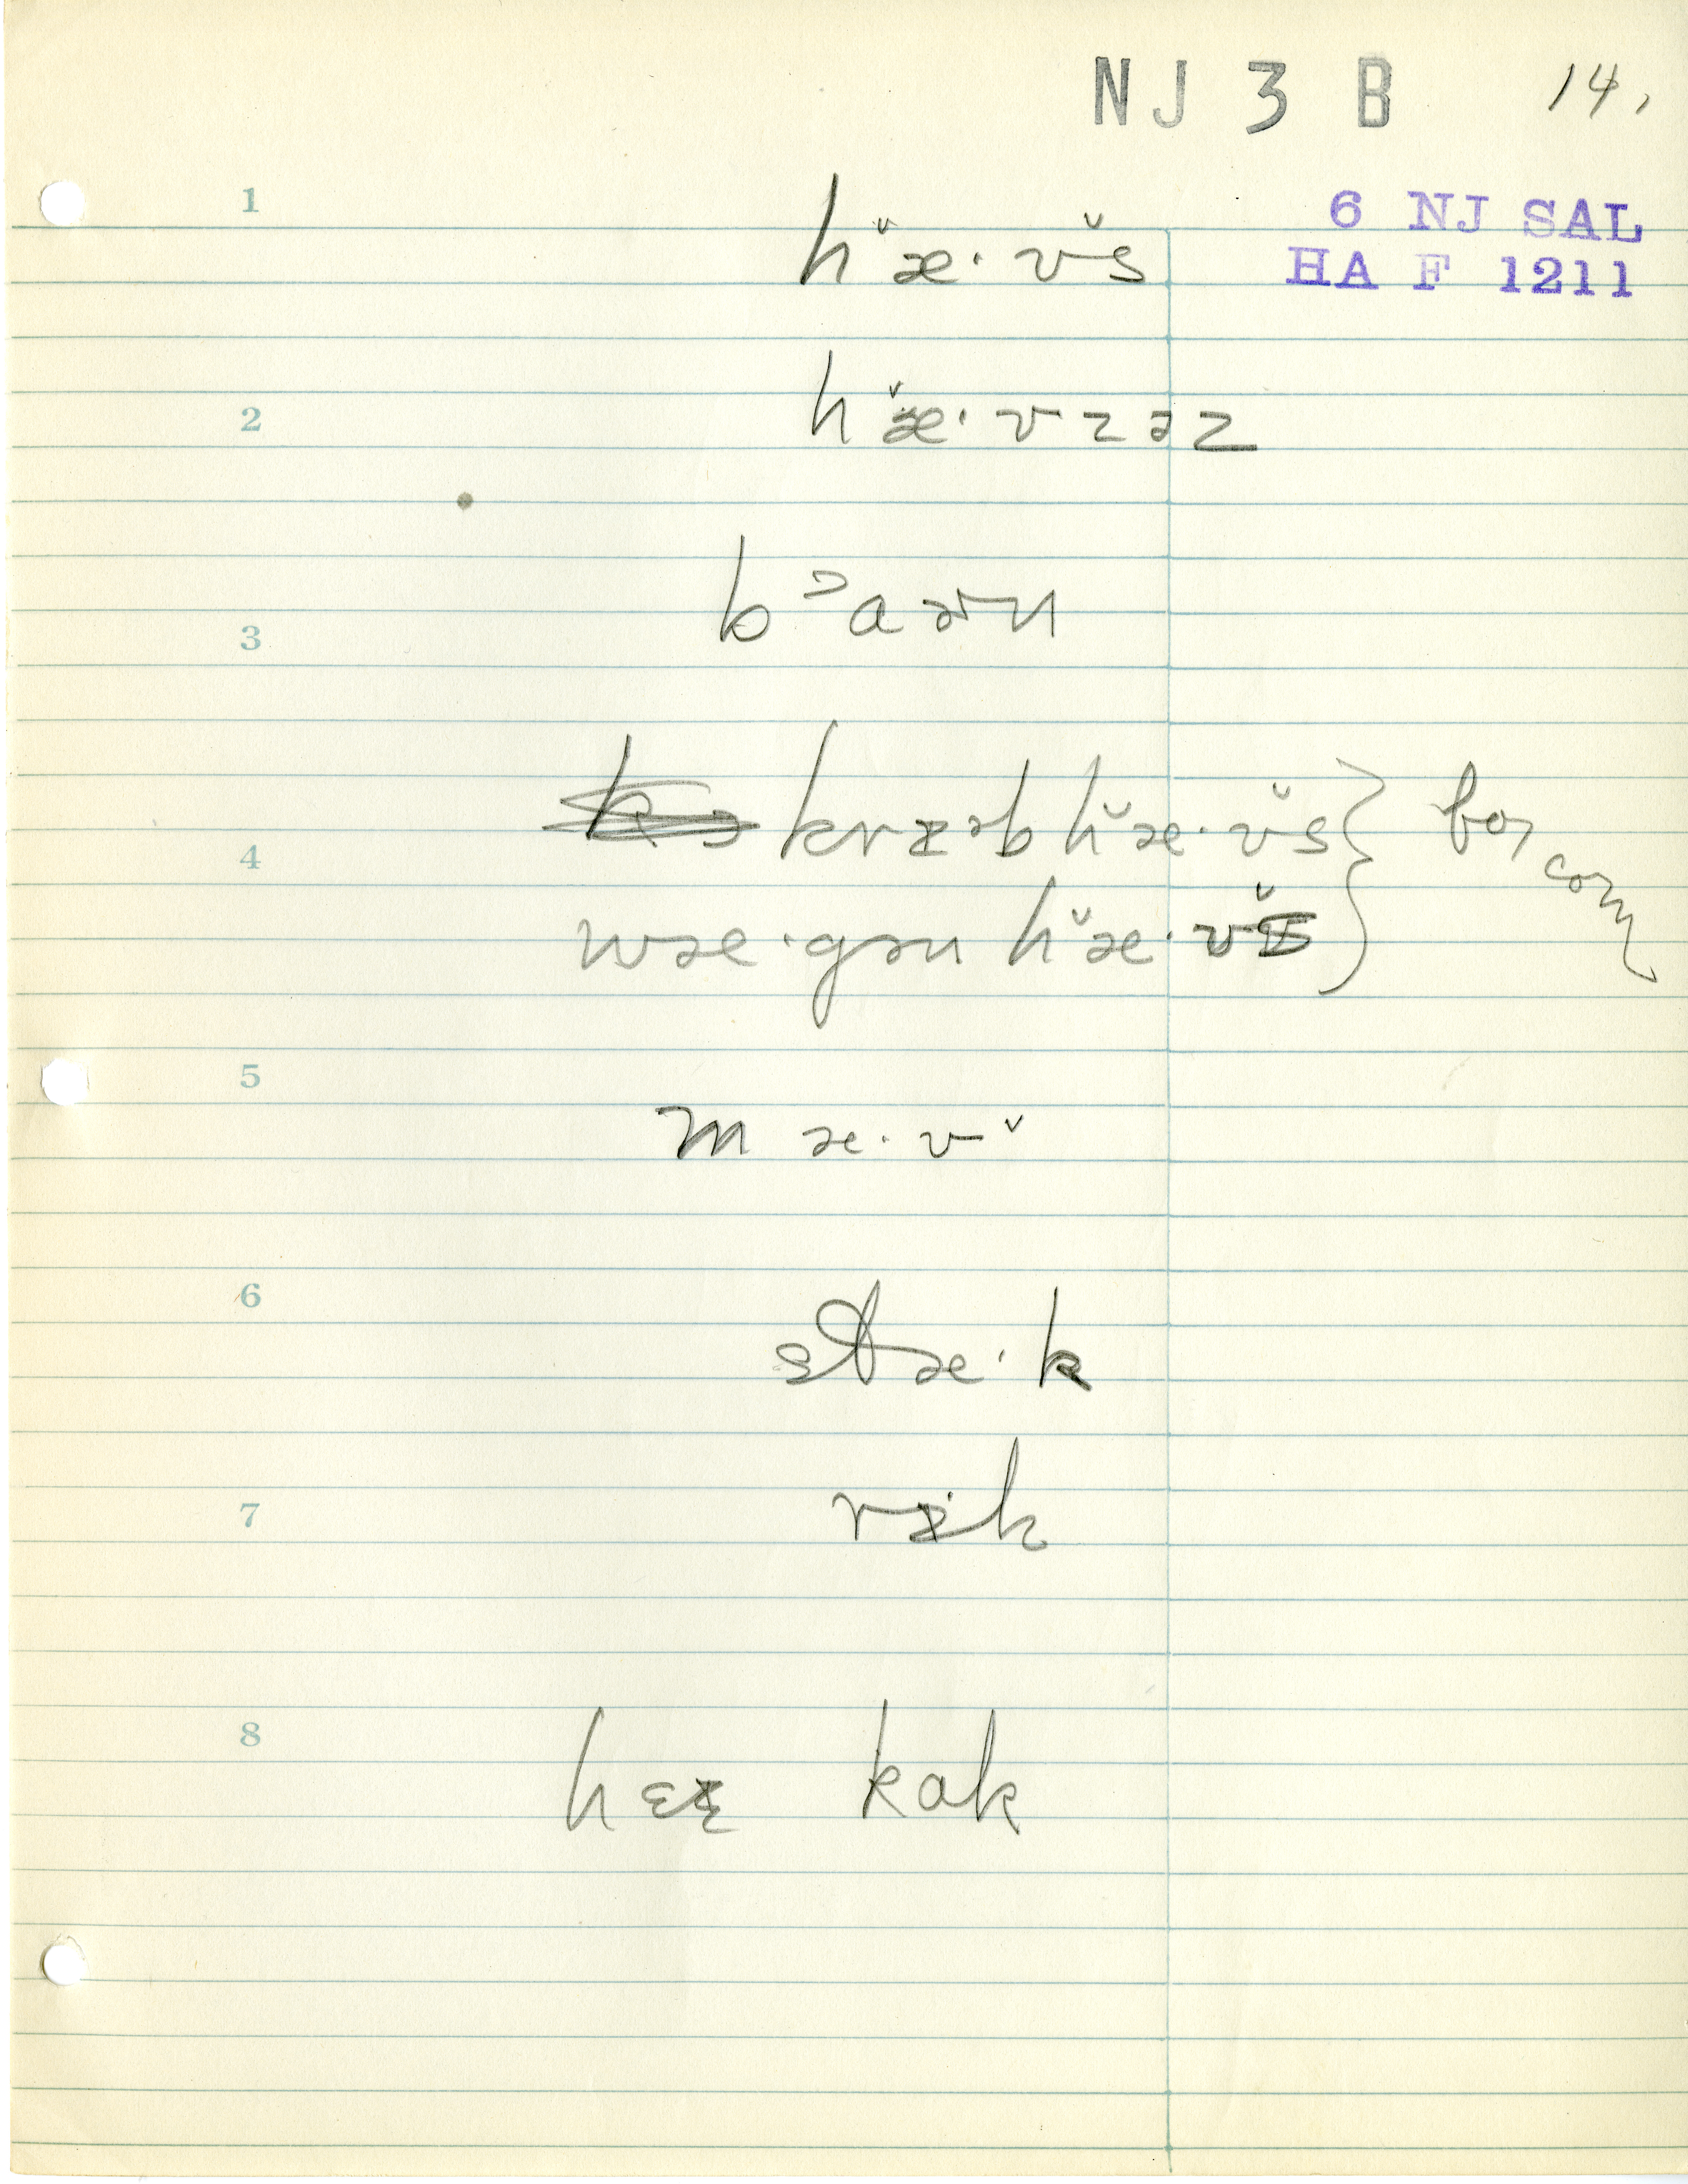 NJ 3 B 14,
6 NJ SAL
HA F 1211
1
hᵛæ·vᵛs
2
hᵛæ·vzəz
3
bᵓaərn
krɪəb hᵛæ·vᵛs } for corn
4
wæ·gən hᵛæ·vᵛs
5
mæ·vᵛ
6
stæ·k
7
rɪk
8
hɛɪ kɑk